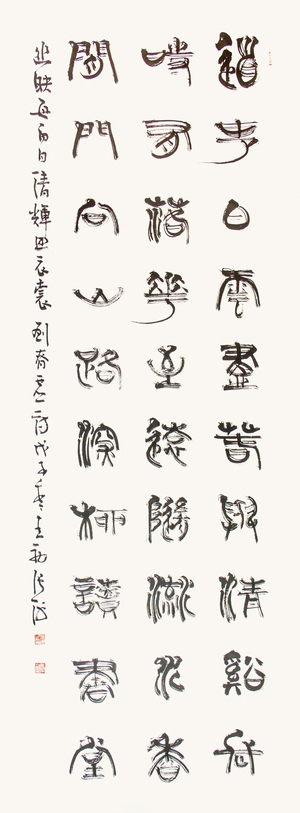 道由白雲盡春與清谿長
時有落花至遠隨流水香
閒門向山路深柳讀書堂
幽映每白日清輝照衣裳 劉眘虛詩戊子